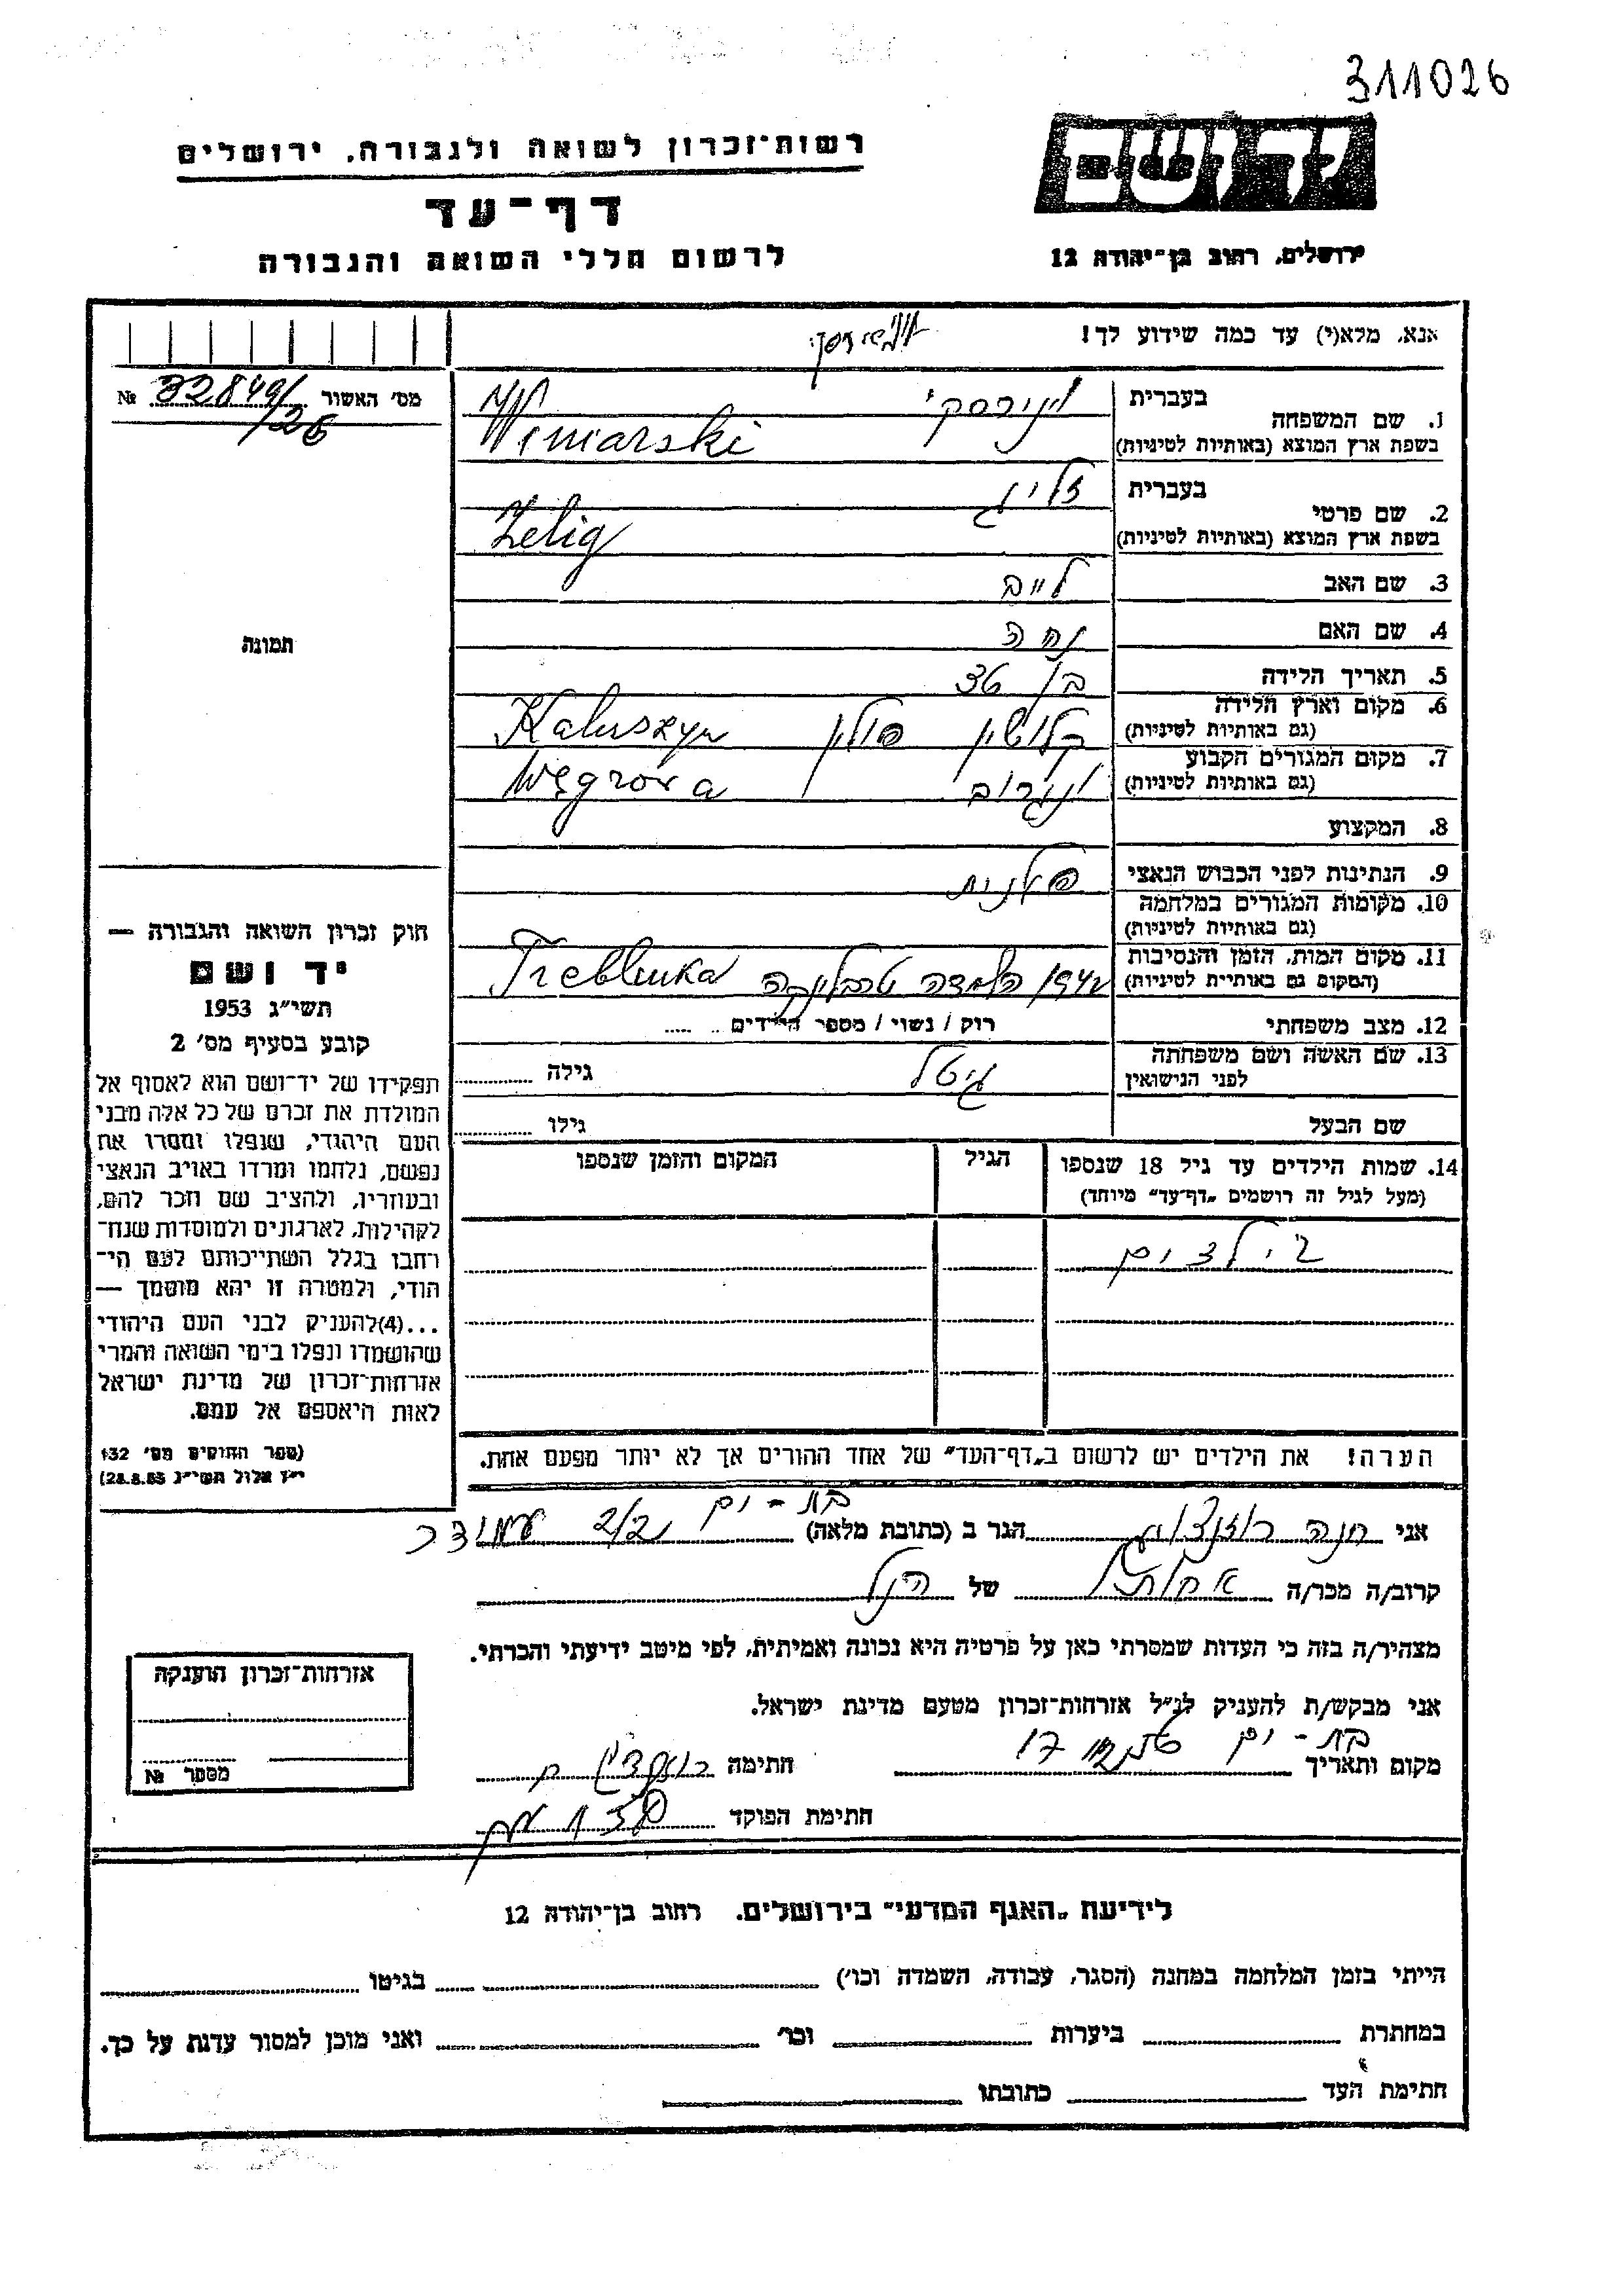 311026
יד ושם
ירושלים, רחוב בן־יהודה 12
רשות־זכרון לשואה ולגבורה, ירושלים
דף־עד
לרשום חללי השואה והגבורה
אנא, מלא(י) עד כמה שידוע לך!
מס' האשור 32849/26 №
1. שם המשפחה
בעברית וינירסקי
בשפת ארץ המוצא (באותיות לטיניות) Winiarski
2. שם פרטי
בעברית זליג
בשפת ארץ המוצא (באותיות לטיניות) Zelig
3. שם האב לייב
4. שם האם
5. תאריך הלידה בן
6. מקום וארץ הלידה
(גם באותיות לטיניות) קלושין פולין Kaluszyn
7. מקום המגורים הקבוע
(גם באותיות לטיניות) ונגרוב Węgrowa
8. המקצוע
9. הנתינות לפני הכבוש הנאצי פולנית
10. מקומות המגורים במלחמה
(גם באותיות לטיניות)
11. מקום המות, הזמן והנסיבות
(המקום גם באותיות לטיניות) 1942 השמדה טרבלינקה Treblinka
12. מצב משפחתי רוק / נשוי / מספר הילדים
13. שם האשה ושם משפחתה
לפני הנישואין גיטל גילה
שם הבעל גילו
14. שמות הילדים עד גיל 18 שנספו
(מעל לגיל זה רושמים „דף־עד" מיוחד)
הגיל
המקום והזמן שנספו
2 ילדים
הערה! את הילדים יש לרשום ב„דף־העד" של אחד ההורים אך לא יותר מפעם אחת.
תמונה
חוק זכרון השואה והגבורה —
יד ושם
תשי"ג 1953
קובע בסעיף מס' 2
תפקידו של יד־ושם הוא לאסוף אל
המולדת את זכרם של כל אלה מבני
העם היהודי, שנפלו ומסרו את
נפשם, נלחמו ומרדו באויב הנאצי
ובעוזריו, ולהציב שם וזכר להם,
לקהילות, לארגונים ולמוסדות שנח־
רחבו בגלל השתייכותם לעם הי־
הודי, ולמטרה זו יהא מוסמך —
...(4)להעניק לבני העם היהודי
שהושמדו ונפלו בימי השואה והמרי
אזרחות־זכרון של מדינת ישראל
לאות היאספם אל עמם.
(ספר החוקים מס' 132
י"ז אלול תשי"ג 28.8.53)
אני חנה הגר ב (כתובת מלאה) בת-ים
קרוב/ה מכר/ה של הנ"ל
מצהיר/ה בזה כי העדות שמסרתי כאן על פרטיה היא נכונה ואמיתית, לפי מיטב ידיעתי והכרתי.
אני מבקש/ת להעניק לנ"ל אזרחות־זכרון מטעם מדינת ישראל.
מקום ותאריך בת-ים חתימה
חתימת הפוקד
אזרחות־זכרון הוענקה
מספר №
לידיעת „האגף המדעי" בירושלים. רחוב בן־יהודה 12
הייתי בזמן המלחמה במחנה (הסגר, עבודה, השמדה וכו') בגיטו
במחתרת ביערות וכו' ואני מוכן למסור עדות על כך.
חתימת העד כתובתו